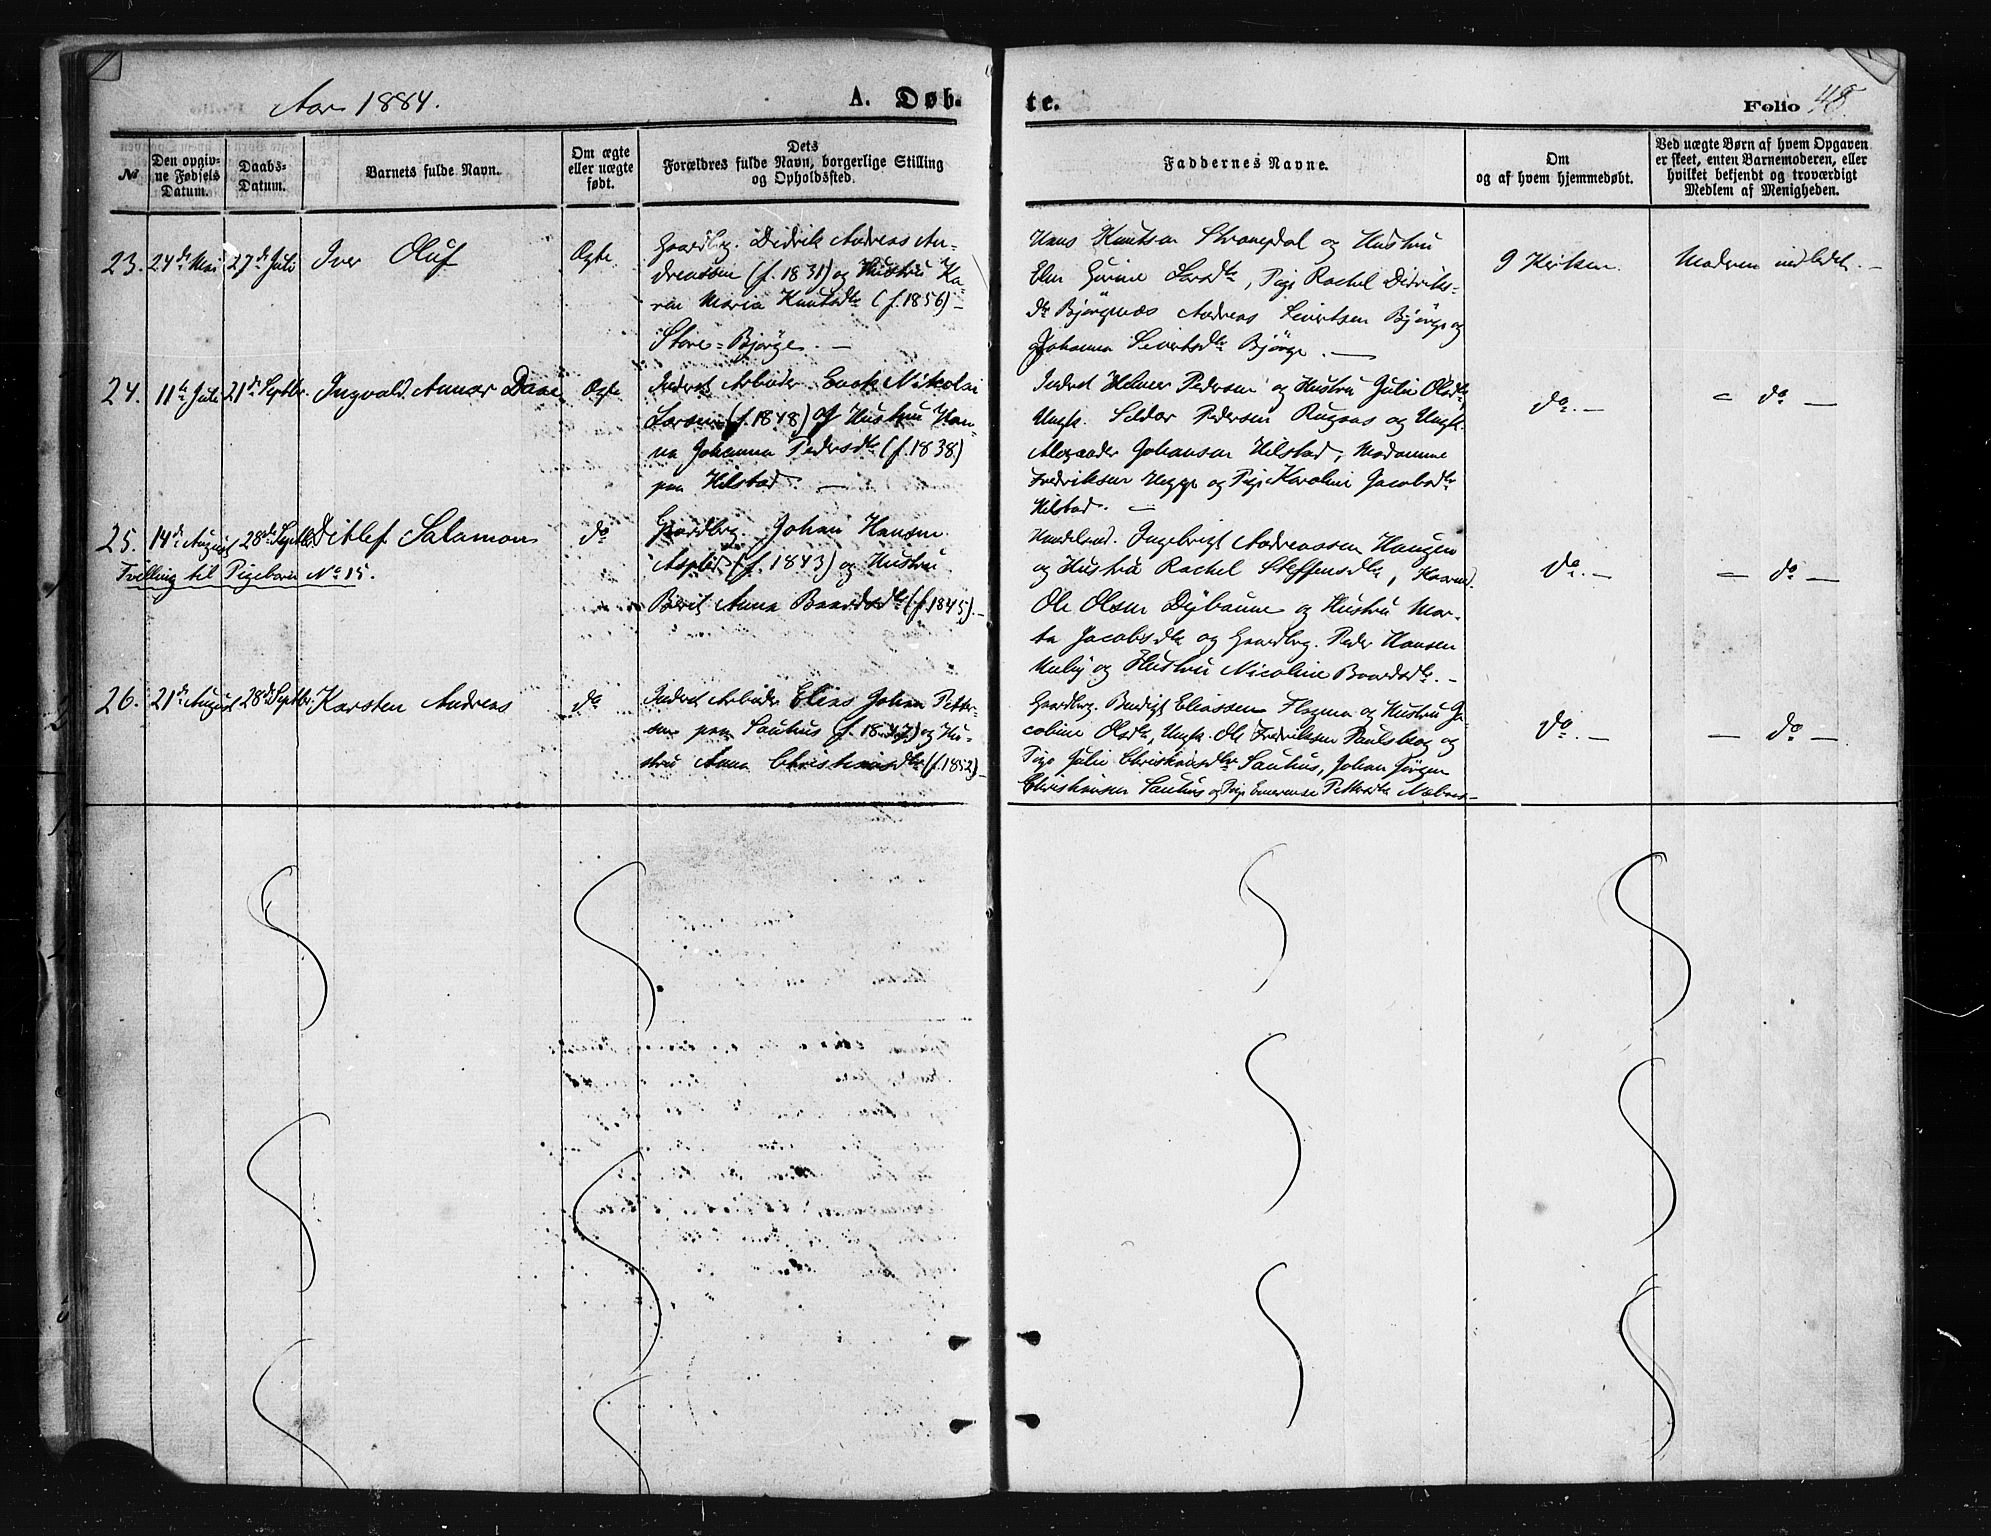 Aar 1884.
A. Døb-
te.
Folio 48.
No
Den opgiv-
ne Fødsels
Datum.
Daabs-
Datum.
Barnets fulde Navn.
Om ægte
eller uægte
født.
Dets
Forældres fulde Navn, borgerlige Stilling
og Opholdssted.
Faddernes Navne.
Om
og af hvem hjemmedøbt.
Ved uægte Børn af hvem Opgaven
er skeet, enten Barnemoderen, eller
hvilket bekjendt og troværdigt
Medlem af Menigheden.
23. 24de Mai 27de Juli Iver Oluf Ægte
Gaardbrg. Didrik Andreas An-
dreassen (f. 1831) og Hustru Ka-
ren Maria Knutsdtr (f. 1856) -
Store-Bjørge. -
Hans Knutsen Strangdal og Hustru
Elen Larsdtr, Pige Rachel Didriks-
dtr Bjørgnæs Andreas Sivertsen Bjørge og
Johanna Sivertsdtr Bjørge. -
I Kirken.
Moderen indledet. -
24. 11te Juli 21de Septbr. Ingvald Annar Daae Ægte
Inderst Arbeider Enok Nikolai
Larsen (f. 1848) og Hustru Han-
na Johanna Pedersdtr (f. 1838)
paa Hilstad. -
Inderst Helmer Pedersen og Hustru Julie Olsdtr,
Ungk. Peldor Pedersen og Ungk.
Alexander Johansen Hilstad, Madamme
Fredriksen og Pige Karoline Jacobsdtr
Hilstad. -
do. -
- do -
25. 14de August 28de Septbr. Ditlef Salamon do
Tvilling til Pigebarn No 15.
Gaardbrg. Johan Hansen
(f. 1843) og Hustru
Berit Anna Baardsdtr (f. 1845). -
Handelsmd. Ingebrigt Andreassen Haugen
og Hustru Rachel Steffensdtr,
Ole Olsen og Hustru Mar-
ta Jacobsdtr og Gaardbrg. Peder Hansen
og Hustru Nicoline Baardsdtr. -
do. -
- do -
26. 21de August 28de Septbr. Karsten Andreas do
Inderst Arbeider Elias Johan Petter-
sen paa Sauhus (f. 1847) og Hu-
stru Anna Christiansdtr (f. 1852) -
Gaardbrg. Bendigt Eliassen og Hustru Ja-
cobine Olsdtr, Ungk. Ole Fredriksen Paulskog og
Pige Julie Christiansdtr Sauhus, Johan Jørgen
Christiansen Sauhus og Pige Emerense Pettersdtr
do. -
- do -